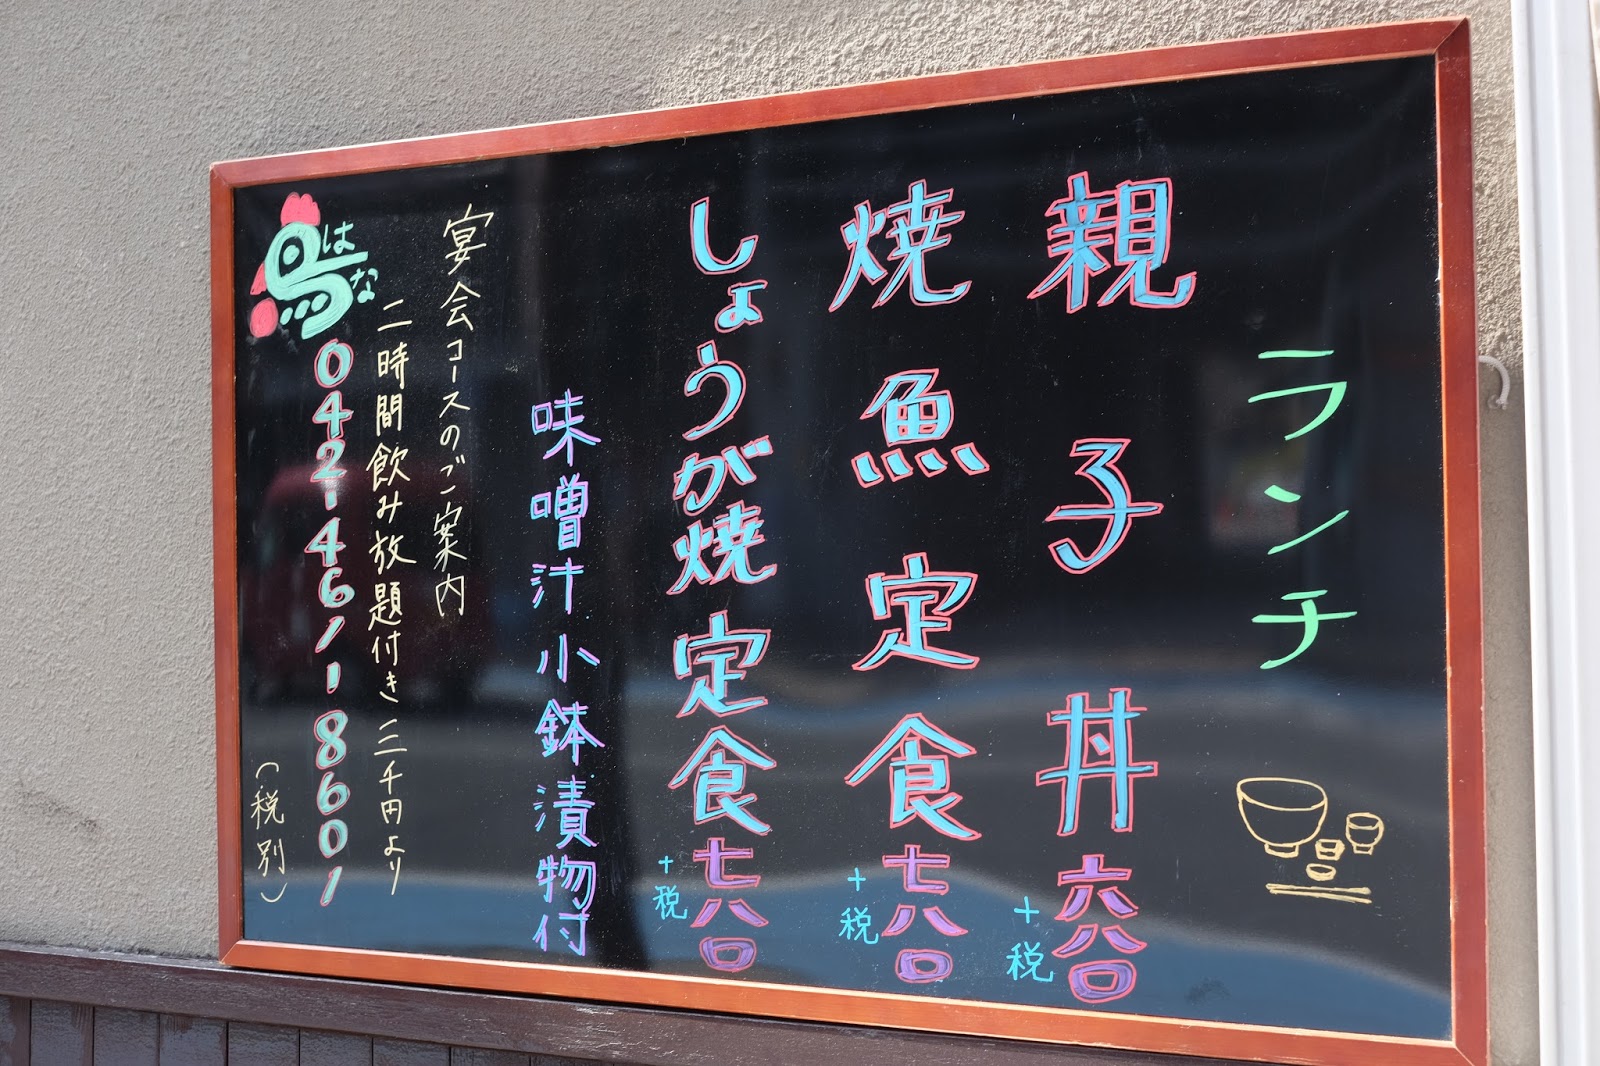 ランチ
親子丼 六八〇
+税
焼魚定食 七八〇
+税
しょうが焼定食 七八〇
+税
味噌汁小鉢漬物付
宴会コースのご案内
二時間飲み放題付き 三千円より
鳥はな
042-446-1860
(税別)